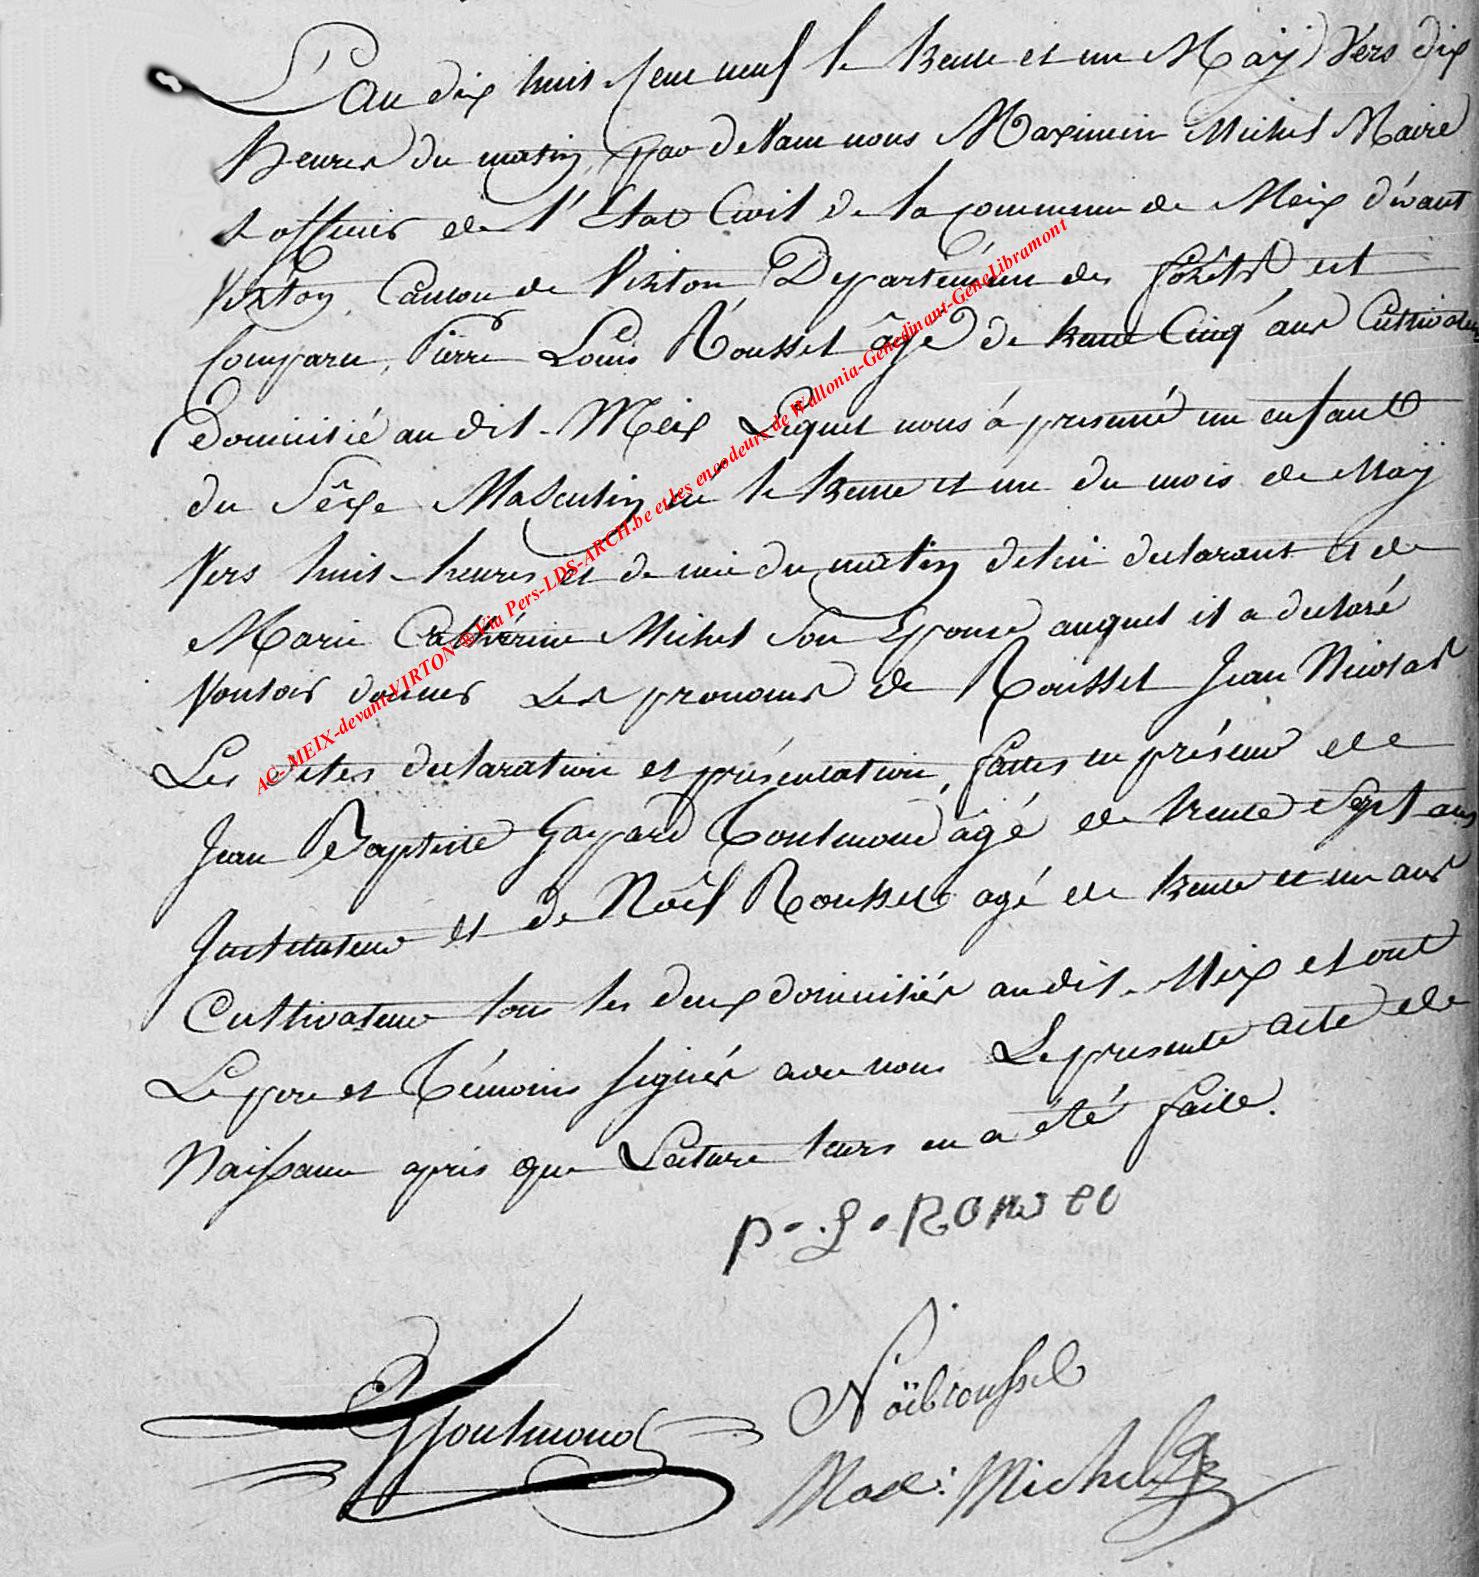 L'an dix huit cent neuf le trente et un Maÿ Vers dix
heures du matin, par devant nous Maximin Michel Maire
et officier de l'Etat Civil de la commune de Meix dévant
Virton, Canton de Virton, Departément des forêts est
Comparu, Pierre Louis Roussel âgé de trente Cinq ans Cultivateur
Domicilié au dit Meix Lequel nous à presenté un enfant
du Sêxe Masculin né le trente et un du mois de Maÿ
Vers huit heures et demie du matin de lui declarant et de
Marie Cathérine Michel Son Epouse auquel il a declaré
Vouloir donner Les prenoms de Roussel Jean Nicolas
Les dites declaration et présentation, faites en présence de
Jean Baptiste Gaspard Toulmond âgé de trente Sept ans
Instituteur et de Noël Roussel agé de trente et un ans
Cultivateur tous les deux domiciliés au dit Meix et ont
Le pere et Témoins signés avec nous Le presente acte de
Naissance après que Lecture leurs en a été faite.
P. L. ROUSSEL
Toulmond
Noël roussel
Max: Michel
AC- MEIX-devant-VIRTON ® Via Pers-LDS-ARCH.be et les encodeurs de Wallonia-Genedinant-GeneLibramont